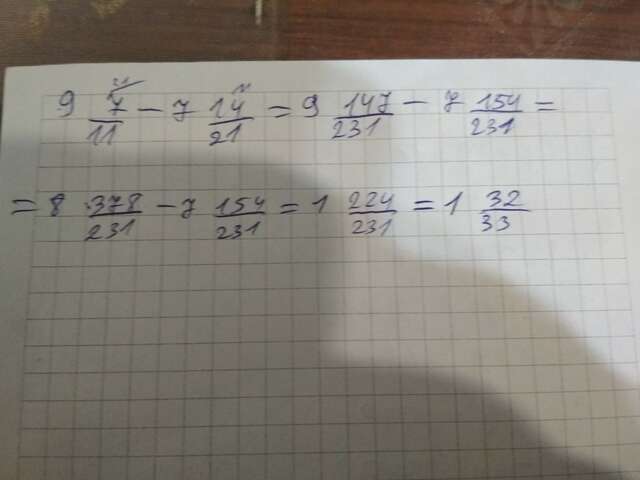 9 7/11 - 7 14/21 = 9 147/231 - 7 154/231 =
= 8 378/231 - 7 154/231 = 1 224/231 = 1 32/33